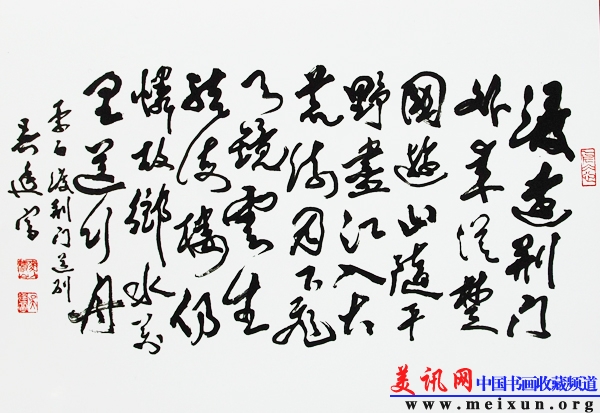 渡遠荆门
外来從楚
國遊山隨平
野盡江入大
荒流月下飛
天鏡雲生
结海樓仍
憐故鄉水万
里送行舟
李白渡荆门送别
美讯网中国书画收藏频道
www.meixun.org